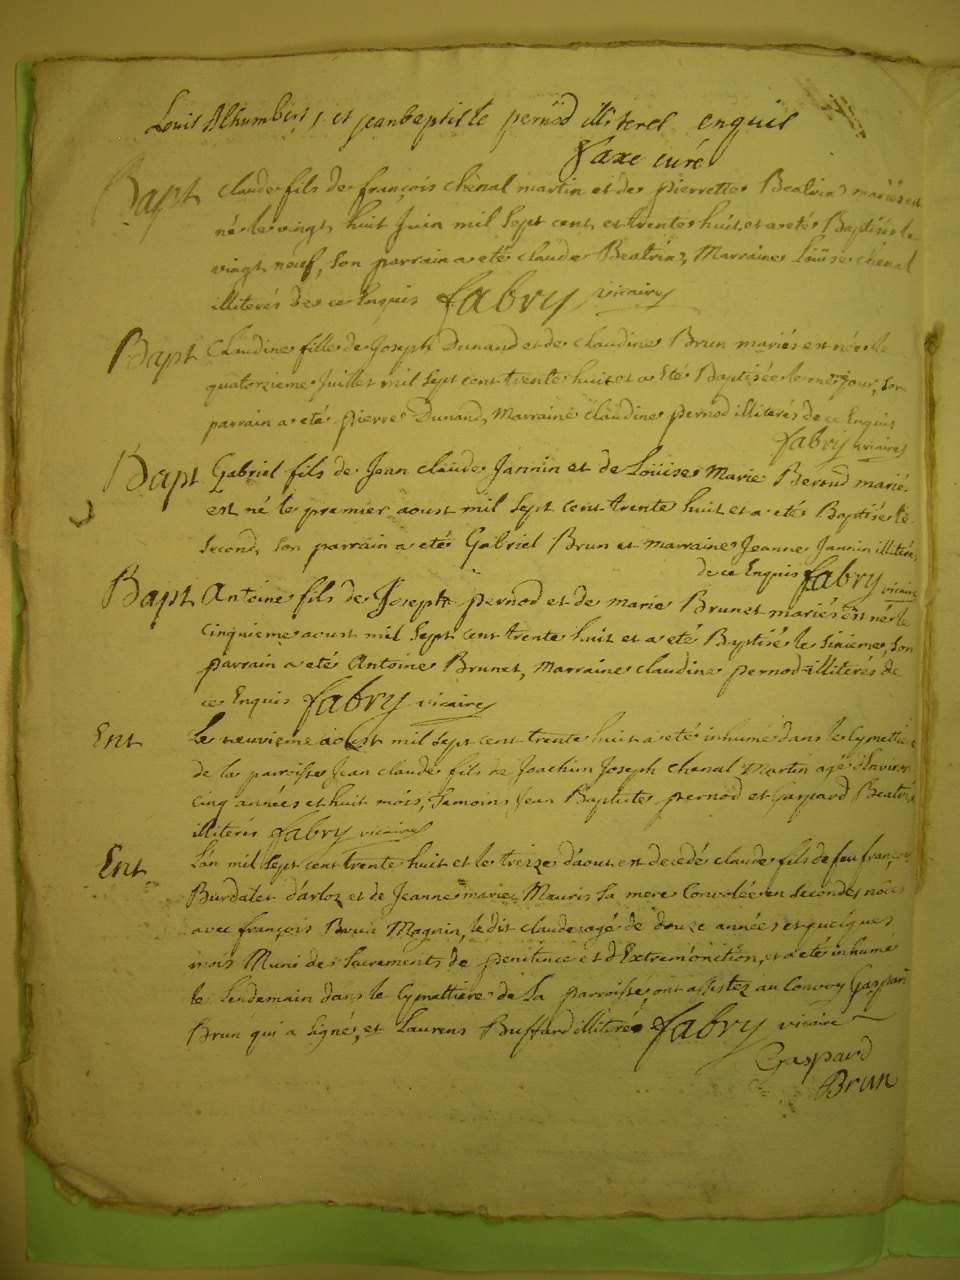 Louis Alhumbert, et jeanbaptiste pernod illiterel enquis
faxe curé
Bapt Claude fils de françois Chenal martin et de pierrette Beatrix mariés est
né le vingt huit Juin mil Sept cent et trente huit et a eté Baptisé le
vingt neuf, Son parrain a eté claude Beatrix, Marraine Loüise chénal
illiterés de ce Enquis fabry vicaire
Bapt Claudine fille de Joseph Dunand et de claudine Brun mariés est née le
quatorzieme Juillet mil Sept cent trente huit et a eté Baptisée le me jour, Son
parrain a eté pierre Dunand, Marraine claudine pernod illiterés de ce Enquis
fabry vicaire
Bapt Gabriel fils de Jean claude Jannin et de Loüise Marie Beroud marié
est né le premier aoust mil Sept cent trente huit et a eté Baptisé le
Second, Son parrain a eté Gabriel Brun et marraine Jeanne Jannin illiteré
de ce Enquis fabry vicaire
Bapt Antoine fils de Joseph pernod et de marie Brunet mariés est né le
Cinquieme aoust mil Sept cent trente huit et a eté Baptisé le Sixieme, Son
parrain a eté Antoine Brunet, Marraine claudine pernod illiterés de
ce Enquis fabry vicaire
Ent Le neuvieme aoust mil Sept cent trente huit a eté inhumé dans le Cymettiere
de la paroisse Jean claude fils de Joachim Joseph Chenal Martin agé d'Environ
Cinq années et huit mois, Temoins Jean Baptiste pernod et Gaspard Beatrix
illiterés fabry vicaire
Ent L'an mil Sept cent trente huit et le treize d'aout est decedé claude fils de feu françois
Burdalet d'arloz et de Jeanne marie Mauris Sa mere Convolée en Secondes nôces
avec françois Brun Magnin, le dit claude agé de douze années et quelques
mois Muni des Sacrements de penitence et d'Extremonction, et a eté inhumé
le lendemain dans le Cymettiere de La parroisse, ont assistez au Convoy Gaspard
Brun qui a Signé, et Laurens Buffard illiteré fabry vicaire
Gaspard
Brun